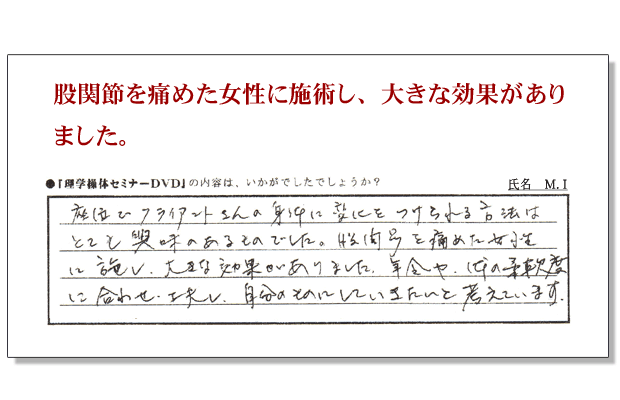 股関節を痛めた女性に施術し、大きな効果があり
ました。
●『理学操体セミナーDVD』の内容は、いかがでしたでしょうか？
氏名 M.I
座位でクライアントさんの身体に変化をつけられる方法は
とても興味のあるものでした。股関節を痛めた女性
に施し、大きな効果がありました。年令や、体の柔軟度
に合わせ、工夫し、自分のものにしていきたいと考えています。